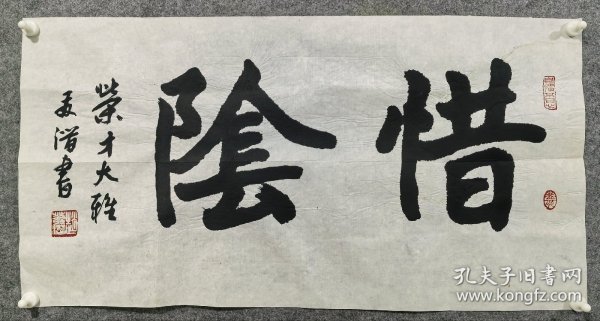 惜陰
榮才大雅
孔夫子旧书网
www.kongfz.com